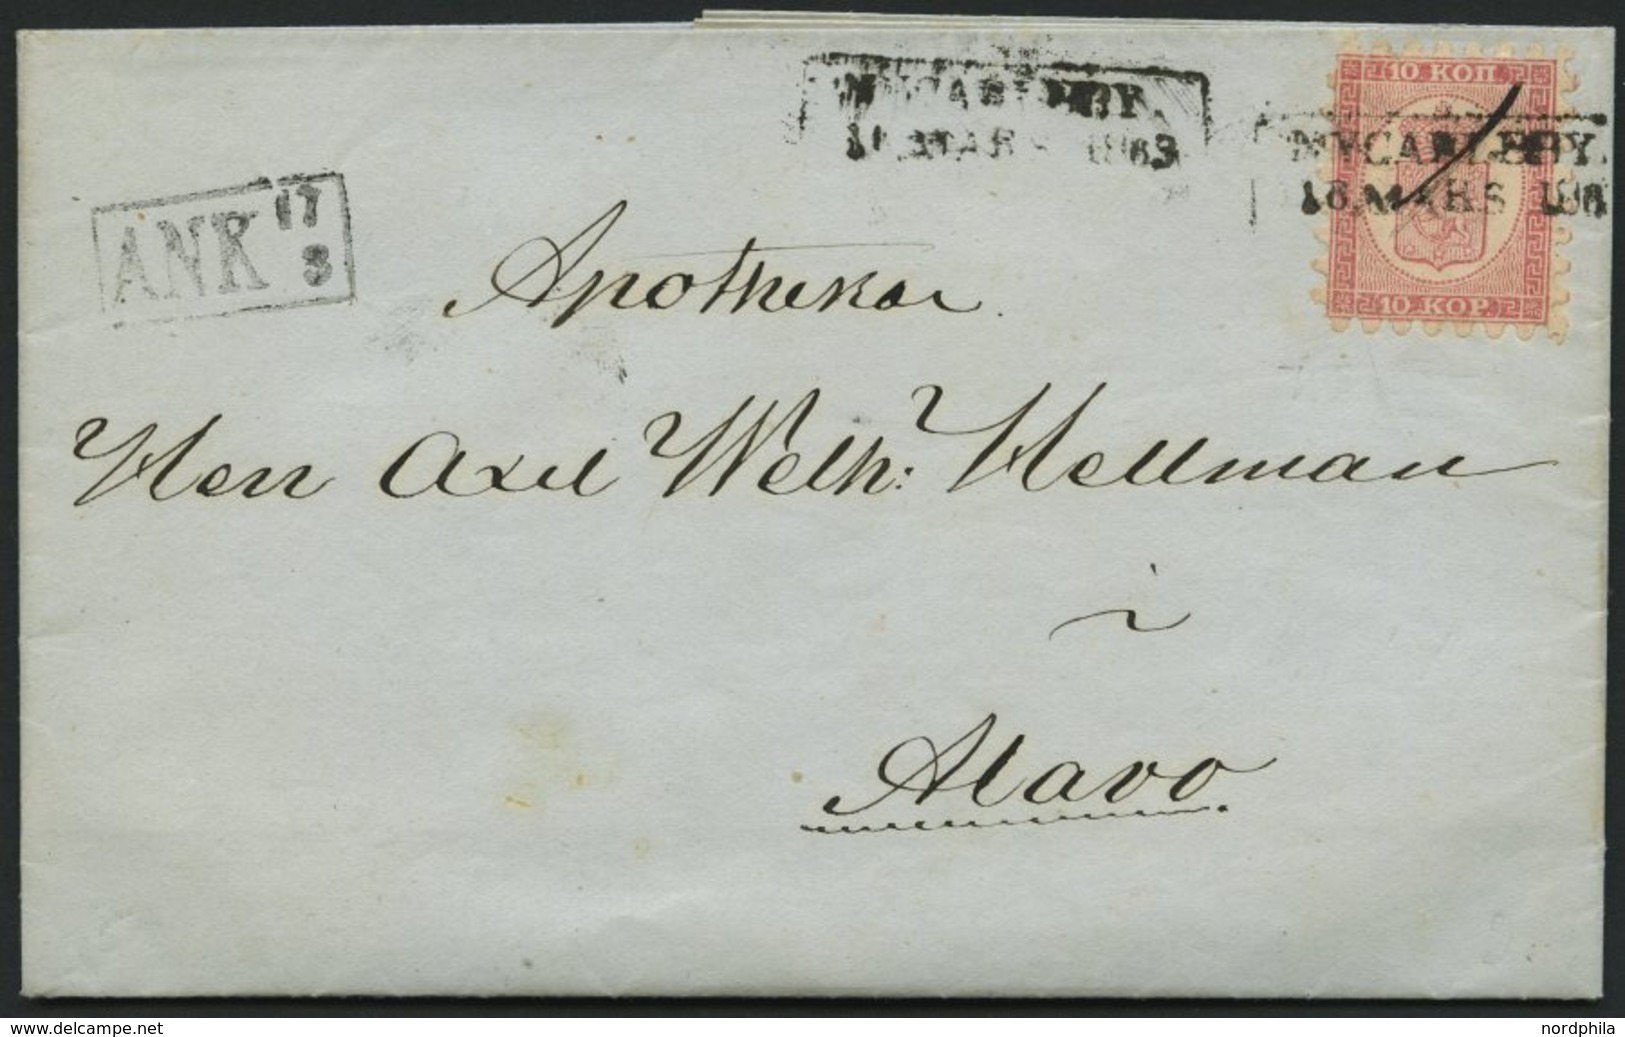 NYCARLEBY.
16 MARS 1863
10 КОП.
NYCARLEBY.
16 MARS 186
10 KOP.
ANK 17
3
Apothekar
Herr Axel Welh: Hellman
i
Alavo.
www.delcampe.net
nordphila